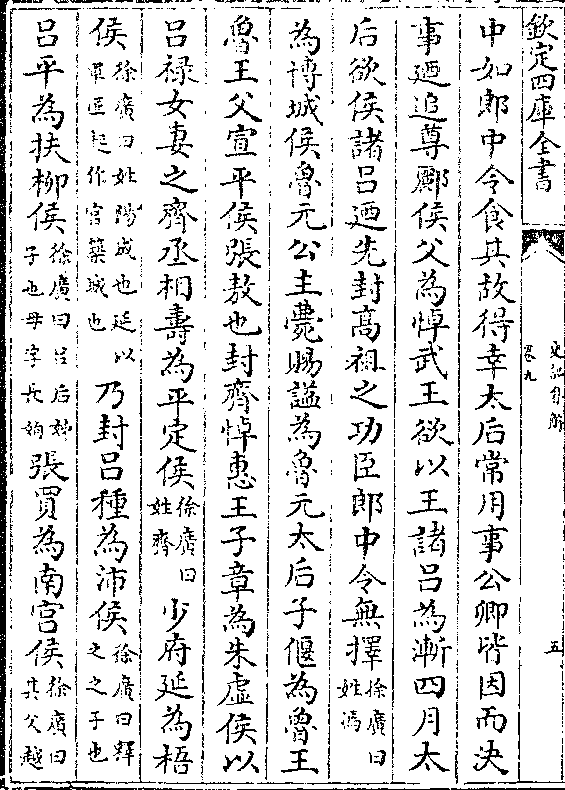 欽定四庫全書
史記集解
卷九
五
中如郎中令食其故得幸太后常用事公卿皆因而決
事廼追尊酈侯父為悼武王欲以王諸吕為漸四月太
后欲侯諸吕廼先封髙祖之功臣郎中令無擇徐廣曰姓馮
為博城侯魯元公主薨賜諡為魯元太后子偃為魯王
魯王父宣平侯張敖也封齊悼惠王子章為朱虛侯以
吕禄女妻之齊丞相壽為平定侯徐廣曰姓齊少府延為梧
侯徐廣曰姓陽成也延以軍匠起作宫築城也乃封吕種為沛侯徐廣曰釋之之子也
吕平為扶柳侯徐廣曰吕后姊子也母字長姁張買為南宫侯徐廣曰其父越